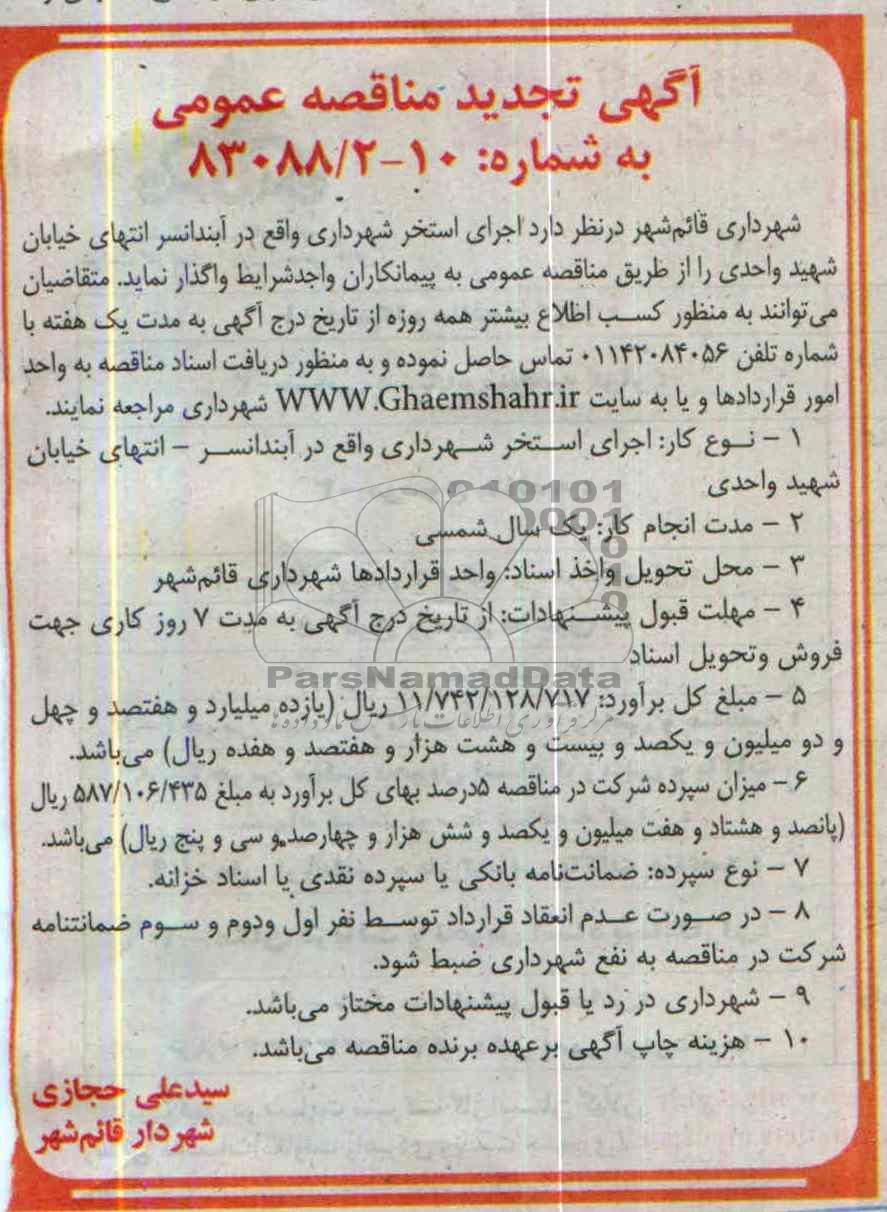 آگهی تجدید مناقصه عمومی
به شماره: ۱۰-۸۳۰۸۸/۲
شهرداری قائم‌شهر درنظر دارد اجرای استخر شهرداری واقع در آبندانسر انتهای خیابان
شهید واحدی را از طریق مناقصه عمومی به پیمانکاران واجدشرایط واگذار نماید. متقاضیان
می‌توانند به منظور کسب اطلاع بیشتر همه روزه از تاریخ درج آگهی به مدت یک هفته با
شماره تلفن ۰۱۱۴۲۰۸۴۰۵۶ تماس حاصل نموده و به منظور دریافت اسناد مناقصه به واحد
امور قراردادها و یا به سایت WWW.Ghaemshahr.ir شهرداری مراجعه نمایند.
۱ – نوع کار: اجرای استخر شهرداری واقع در آبندانسر – انتهای خیابان
شهید واحدی
۲ – مدت انجام کار: یک سال شمسی
۳ – محل تحویل واخذ اسناد: واحد قراردادها شهرداری قائم‌شهر
۴ – مهلت قبول پیشنهادات: از تاریخ درج آگهی به مدت ۷ روز کاری جهت
فروش وتحویل اسناد
ParsNamadData
۵ – مبلغ کل برآورد: ۱۱/۷۴۲/۱۲۸/۷۱۷ ریال (یازده میلیارد و هفتصد و چهل
و دو میلیون و یکصد و بیست و هشت هزار و هفتصد و هفده ریال) می‌باشد.
۶ – میزان سپرده شرکت در مناقصه ۵درصد بهای کل برآورد به مبلغ ۵۸۷/۱۰۶/۴۳۵ ریال
(پانصد و هشتاد و هفت میلیون و یکصد و شش هزار و چهارصد و سی و پنج ریال) می‌باشد.
۷ – نوع سپرده: ضمانت‌نامه بانکی یا سپرده نقدی یا اسناد خزانه.
۸ – در صورت عدم انعقاد قرارداد توسط نفر اول ودوم و سوم ضمانتنامه
شرکت در مناقصه به نفع شهرداری ضبط شود.
۹ – شهرداری در رد یا قبول پیشنهادات مختار می‌باشد.
۱۰ – هزینه چاپ آگهی برعهده برنده مناقصه می‌باشد.
سیدعلی حجازی
شهردار قائم‌شهر